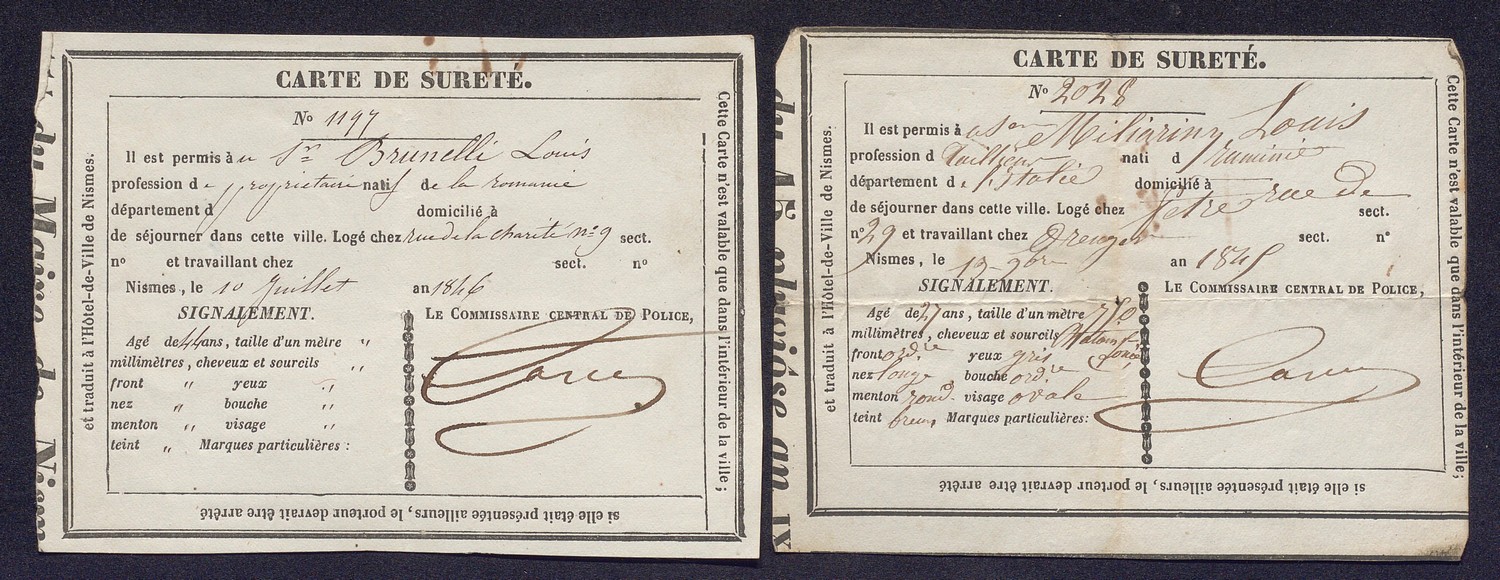 CARTE DE SURETÉ.
No 1197
Il est permis à u Sr Brunelli Louis
profession de propriétaire natif de la romanie
département d domicilié à
de séjourner dans cette ville. Logé chez rue de la charité no 9 sect.
no et travaillant chez sect. no
Nismes, le 10 Juillet an 1846
SIGNALEMENT.
LE COMMISSAIRE CENTRAL DE POLICE,
Agé de 44 ans, taille d'un mètre "
millimètres, cheveux et sourcils "
front " yeux "
nez " bouche "
menton " visage "
teint " Marques particulières :
Cette Carte n'est valable que dans l'intérieur de la ville;
si elle était présentée ailleurs, le porteur devrait être arrêté
et traduit à l'Hôtel-de-Ville de Nismes.
du Maire de Nism
CARTE DE SURETÉ.
No 2028
Il est permis à Louis
profession d Tailleur nati d
département de l'italie domicilié à
de séjourner dans cette ville. Logé chez rue de sect.
no 29 et travaillant chez sect. no
Nismes, le 9bre an 1845
SIGNALEMENT.
LE COMMISSAIRE CENTRAL DE POLICE,
Agé de 27 ans, taille d'un mètre 770
millimètres, cheveux et sourcils foncé
front ordre yeux gris
nez bouche ordre
menton rond visage ovale
teint brun Marques particulières:
Cette Carte n'est valable que dans l'intérieur de la ville;
si elle était présentée ailleurs, le porteur devrait être arrêté
et traduit à l'Hôtel-de-Ville de Nismes.
du 15 pluviôse an IX